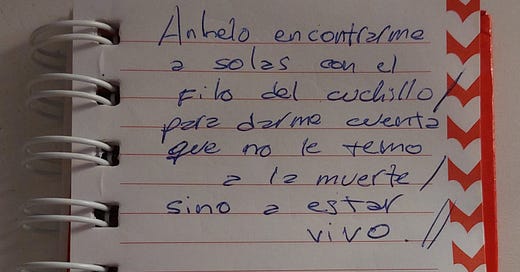 Anhelo encontrarme
a solas con el
filo del cuchillo/
para darme cuenta
que no le temo
a la muerte/
sino a estar
vivo.//